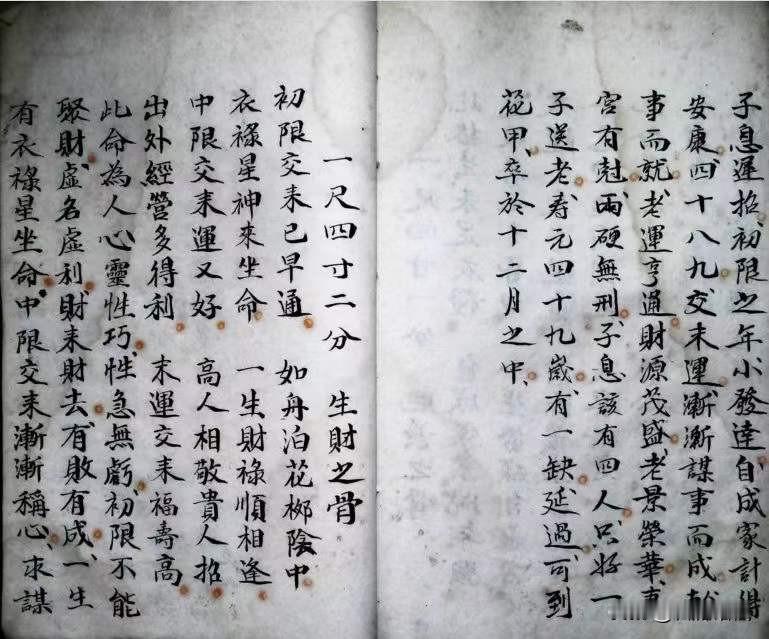 子息遲招初限之年小發達自成家計得
安康四十八九交末運漸漸謀事而成於
事而就老運亨通財源茂盛老景榮華妻
宮有尅兩硬無刑子息該有四人只好一
子送老寿元四十九歲有一缺延過可到
花甲卒於十二月之中
一尺四寸二分 生財之骨
初限交来已早通 如舟泊花柳陰中
衣祿星神來坐命 一生財祿順相逢
中限交来運又好 高人相敬貴人招
出外經營多得利 末運交来福壽高
此命為人心靈性巧性急無虧初限不能
聚財虛名虛利財来財去有敗有成一生
有衣祿星坐命中限交来漸漸稱心求謀